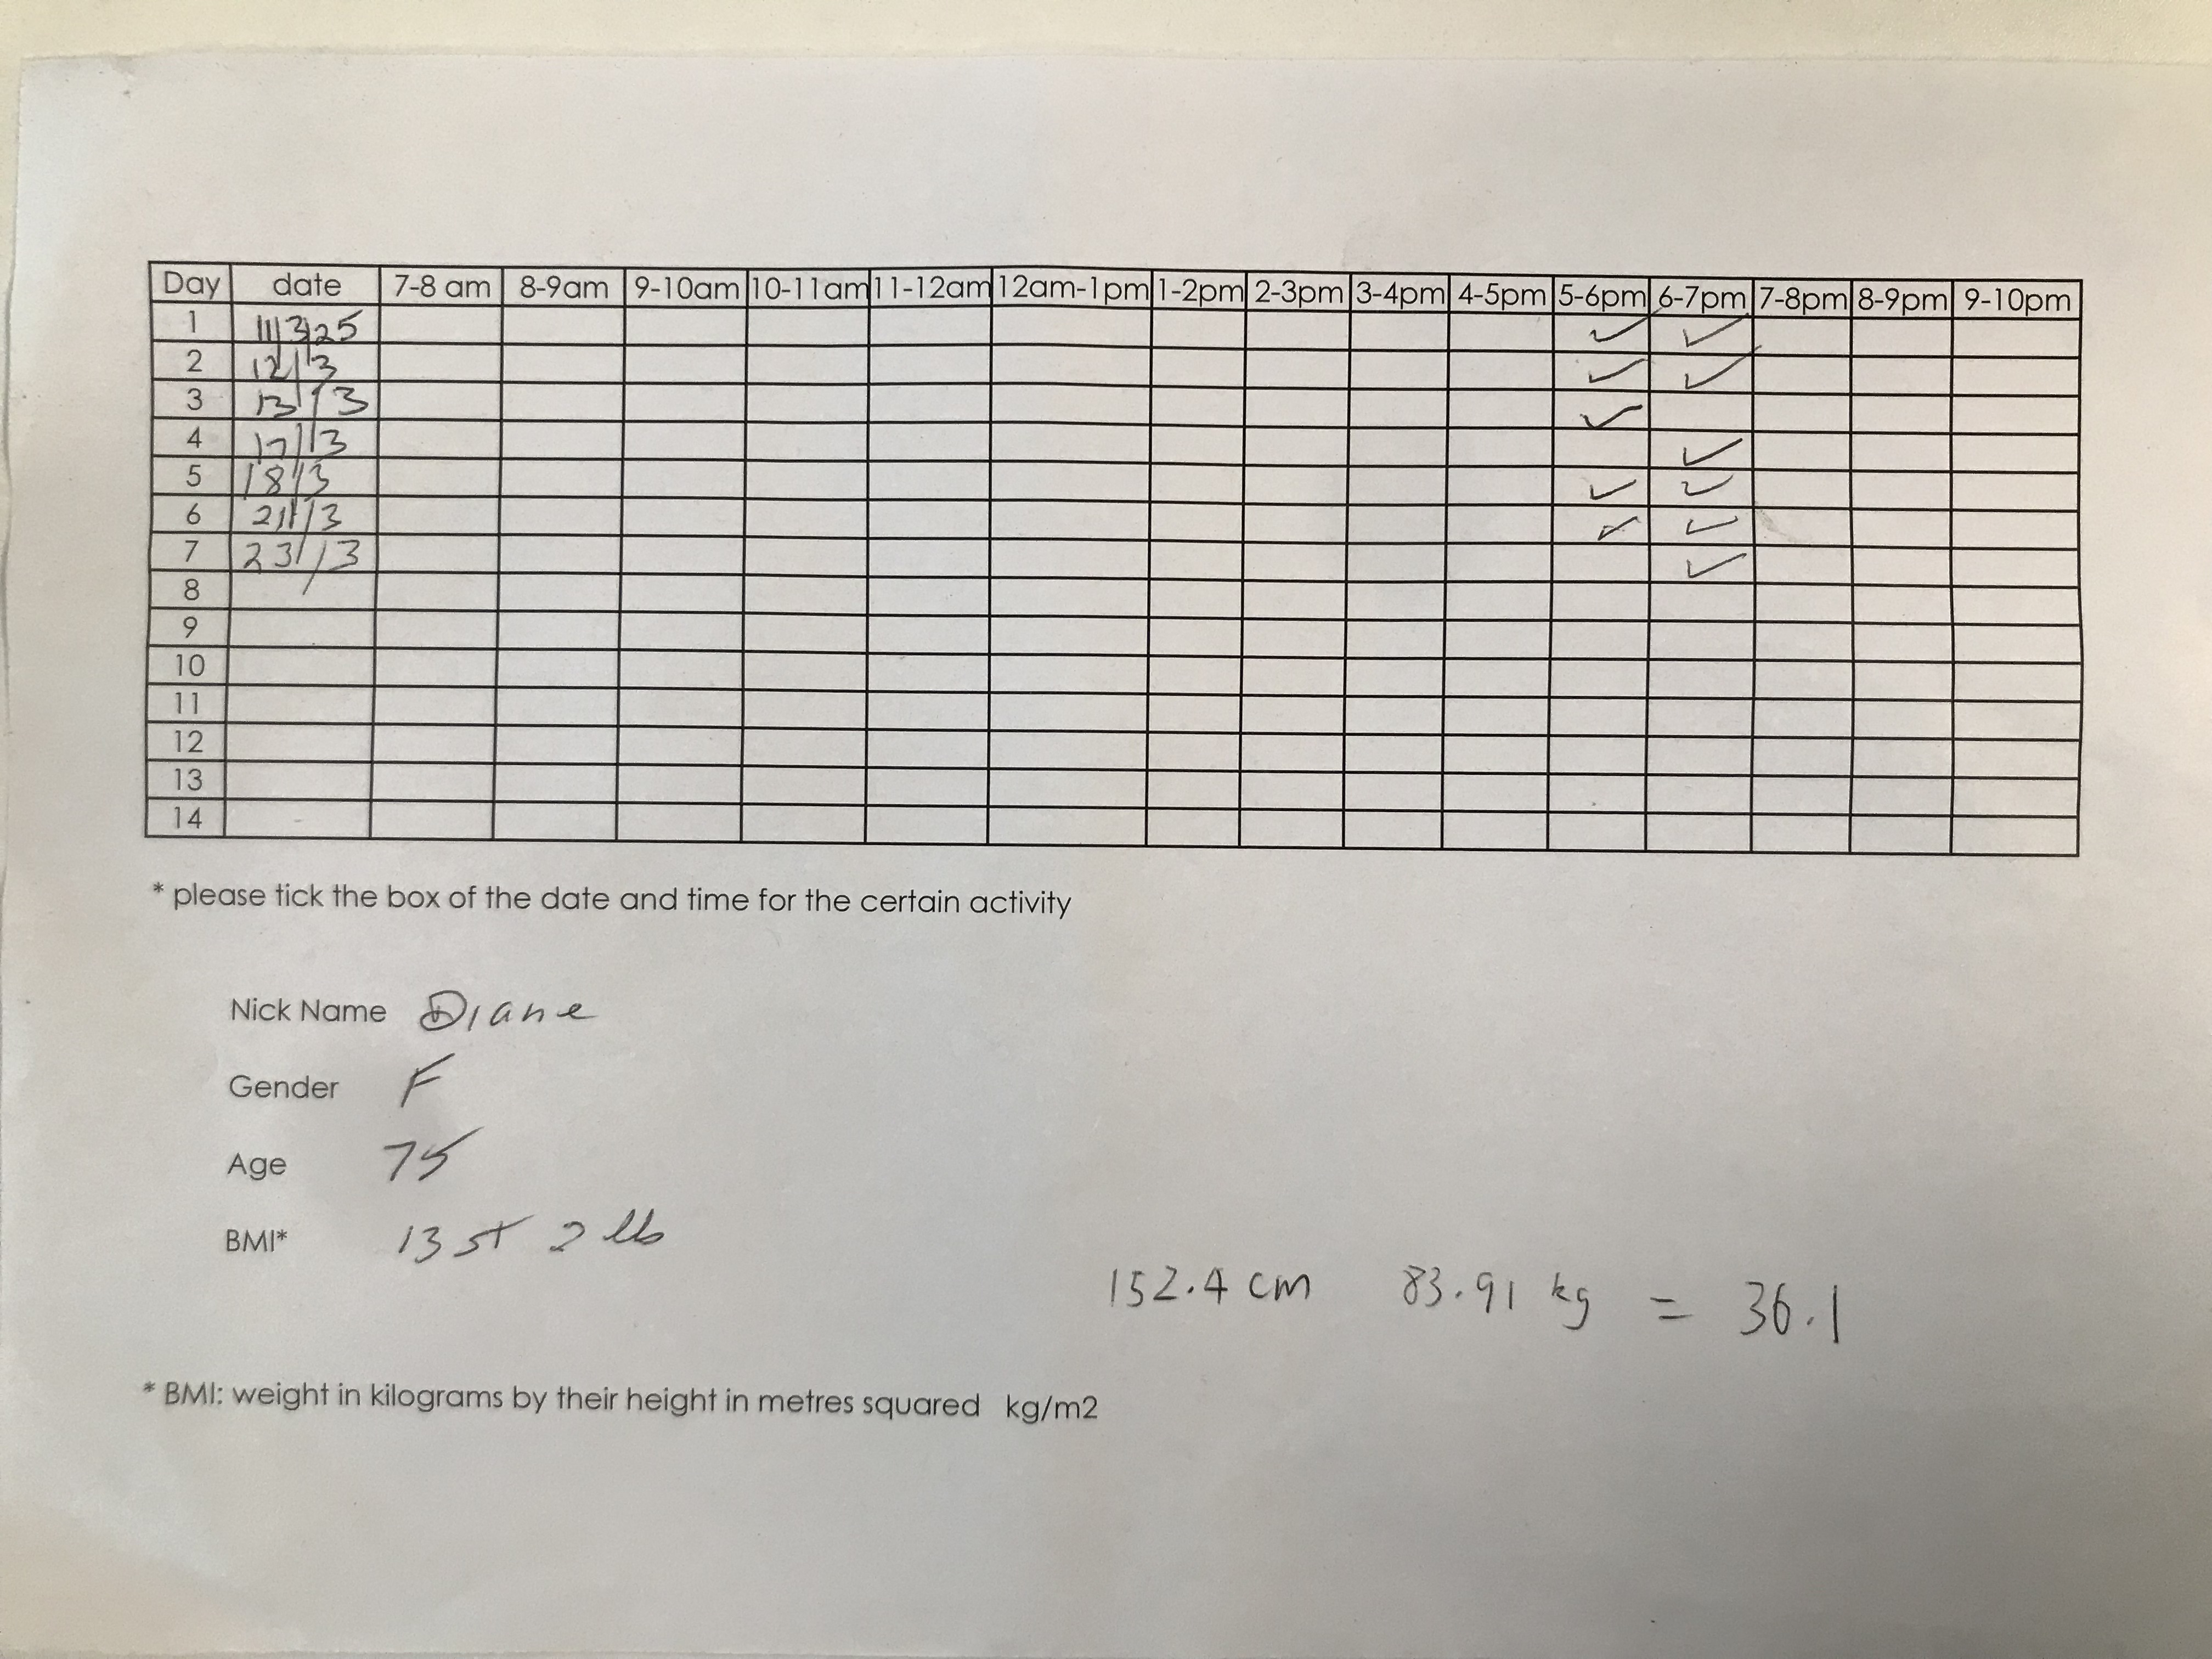 Day date 7-8 am 8-9am 9-10am 10-11am 11-12am 12am-1pm 1-2pm 2-3pm 3-4pm 4-5pm 5-6pm 6-7pm 7-8pm 8-9pm 9-10pm
1 11/3/25 ✓ ✓
2 12/3 ✓ ✓
3 13/3 ✓
4 17/3 ✓
5 18/3 ✓ ✓
6 21/3 ✓ ✓
7 23/3 ✓
8
9
10
11
12
13
14
* please tick the box of the date and time for the certain activity
Nick Name Diane
Gender F
Age 75
BMI* 13 st 2 lb
152.4 cm 83.91 kg = 36.1
* BMI: weight in kilograms by their height in metres squared kg/m2